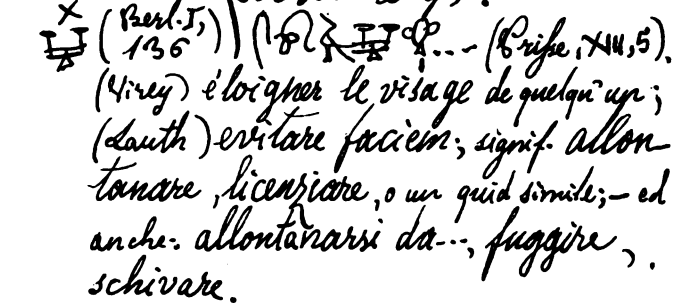 (Berl. I, 136) (Prisse, XII, 5).
(Virey) éloigner le visage de quelqu'un;
(Lauth) evitare faciem; signif. allon-
tanare, licenziare, o un quid simile; — ed
anche: allontanarsi da..., fuggire,
schivare.